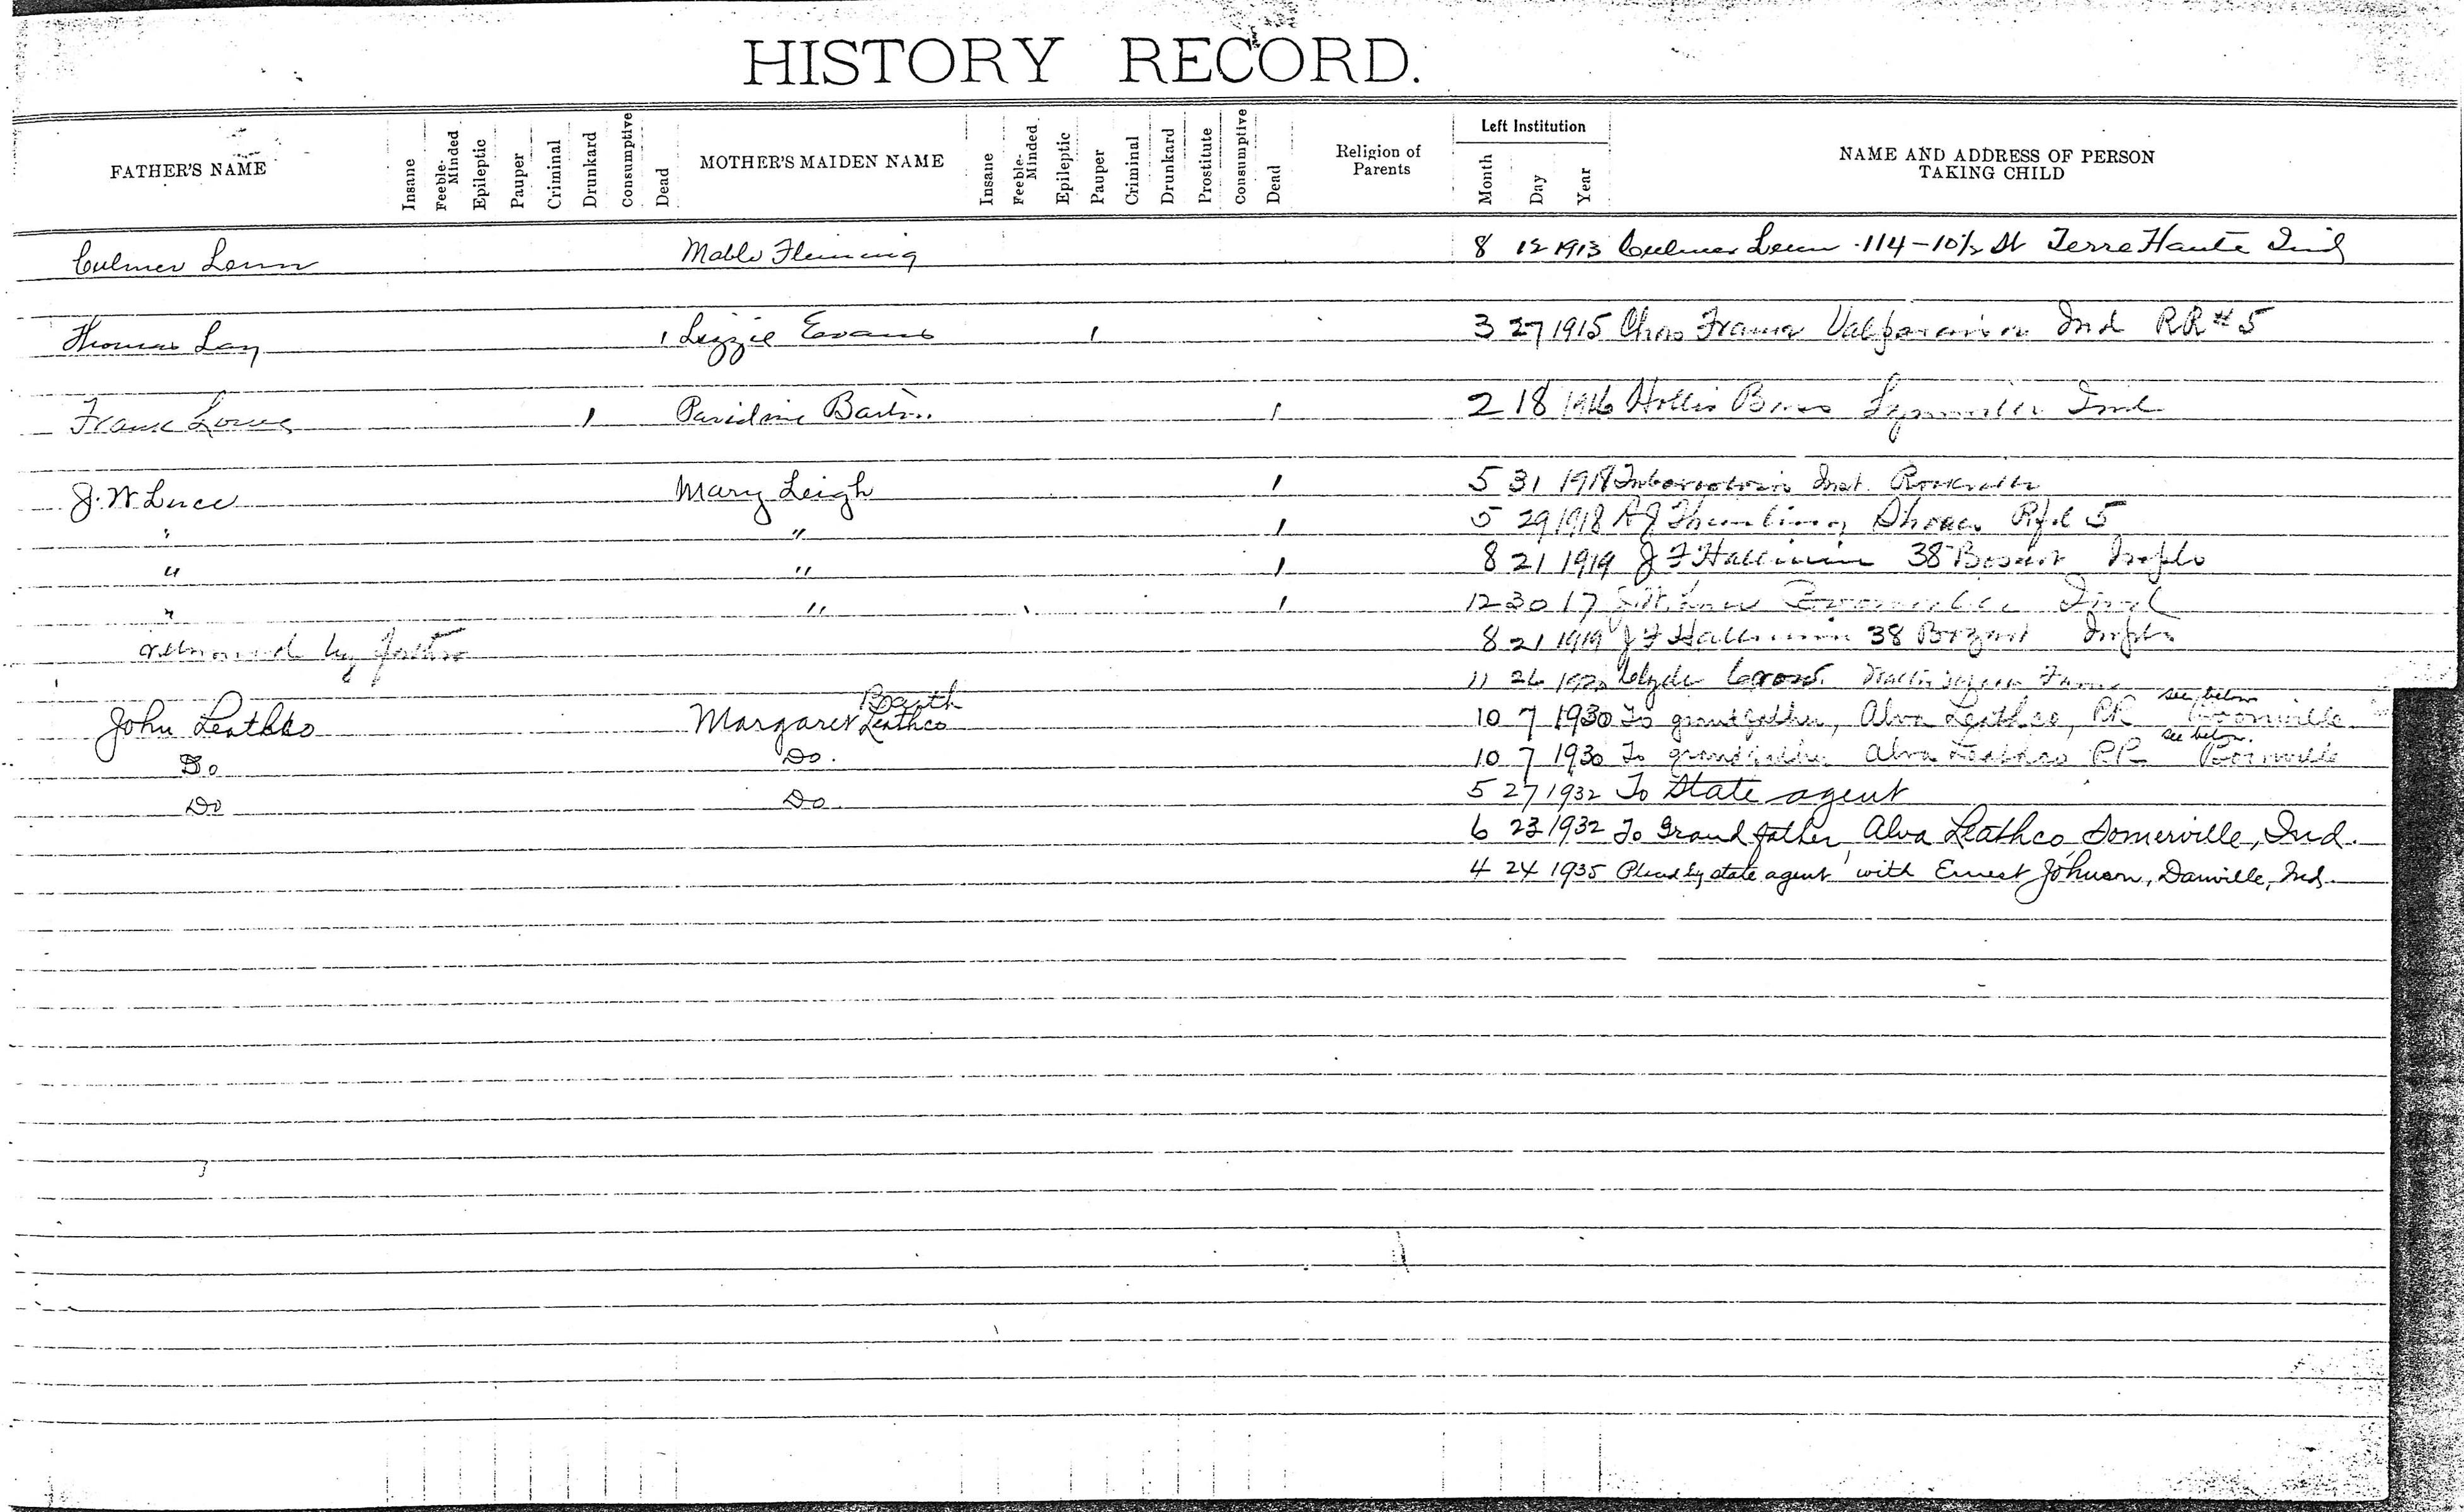 HISTORY RECORD.
FATHER'S NAME Insane Feeble-Minded Epileptic Pauper Criminal Drunkard Consumptive Dead MOTHER'S MAIDEN NAME Insane Feeble-Minded Epileptic Pauper Criminal Drunkard Prostitute Consumptive Dead Religion of Parents Left Institution Month Day Year NAME AND ADDRESS OF PERSON TAKING CHILD
Culmer Mable Fleming 8 12 1913 Culmer 114-10½ St Terre Haute Ind
Thomas Lay 1 Lizzie Evans 1 3 27 1915 Chas Valparaiso Ind RR#5
Frank Lowe 1 Barton 1 2 18 1916 Hollis Lynnville Ind
J. W Luce Mary Leigh 1 5 31 Inst. Rockville
" " 1 5 29 1918 Rfd 5
" " 1 8 21 1919 J F 38 Indpls
" " 1 12 30 17 J. W. Luce Boonville Ind
returned by father 8 21 1919 J F 38 Indpls
11 26 1920 Clyde
John Leathco Margaret Barth Leathco 10 7 1930 To grandfather, Alva Leathco, RR Boonville see below
Do Do. 10 7 1930 To grandfather Alva Leathco RR Boonville see below.
Do Do. 5 27 1932 To State agent
6 23 1932 To Grand father, Alva Leathco, Somerville, Ind.
4 24 1935 by state agent with Ernest Johnson, Danville, Ind.